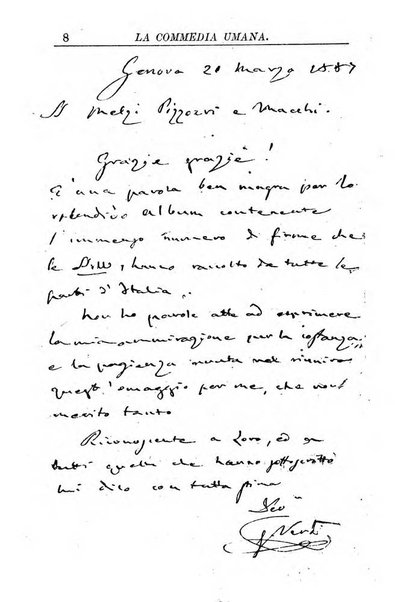 8 LA COMMEDIA UMANA.
Genova 20 Marzo 1887
Melzi Pizzorvi e Macchi.
Grazie grazie!
È una parola ben magra per lo
splendido album contenente
l'immenso numero di firme che
le hanno raccolto da tutte le
parti d'Italia.
Non ho parole atte ad esprimere
la mia ammirazione per la costanza
e la pazienza avuta nel riunire
quest'omaggio per me, che non
merito tanto
Riconoscente a Loro, ed a
tutti quelli che hanno sottoscritto
mi dico con tutta stima
Dev
G Verdi